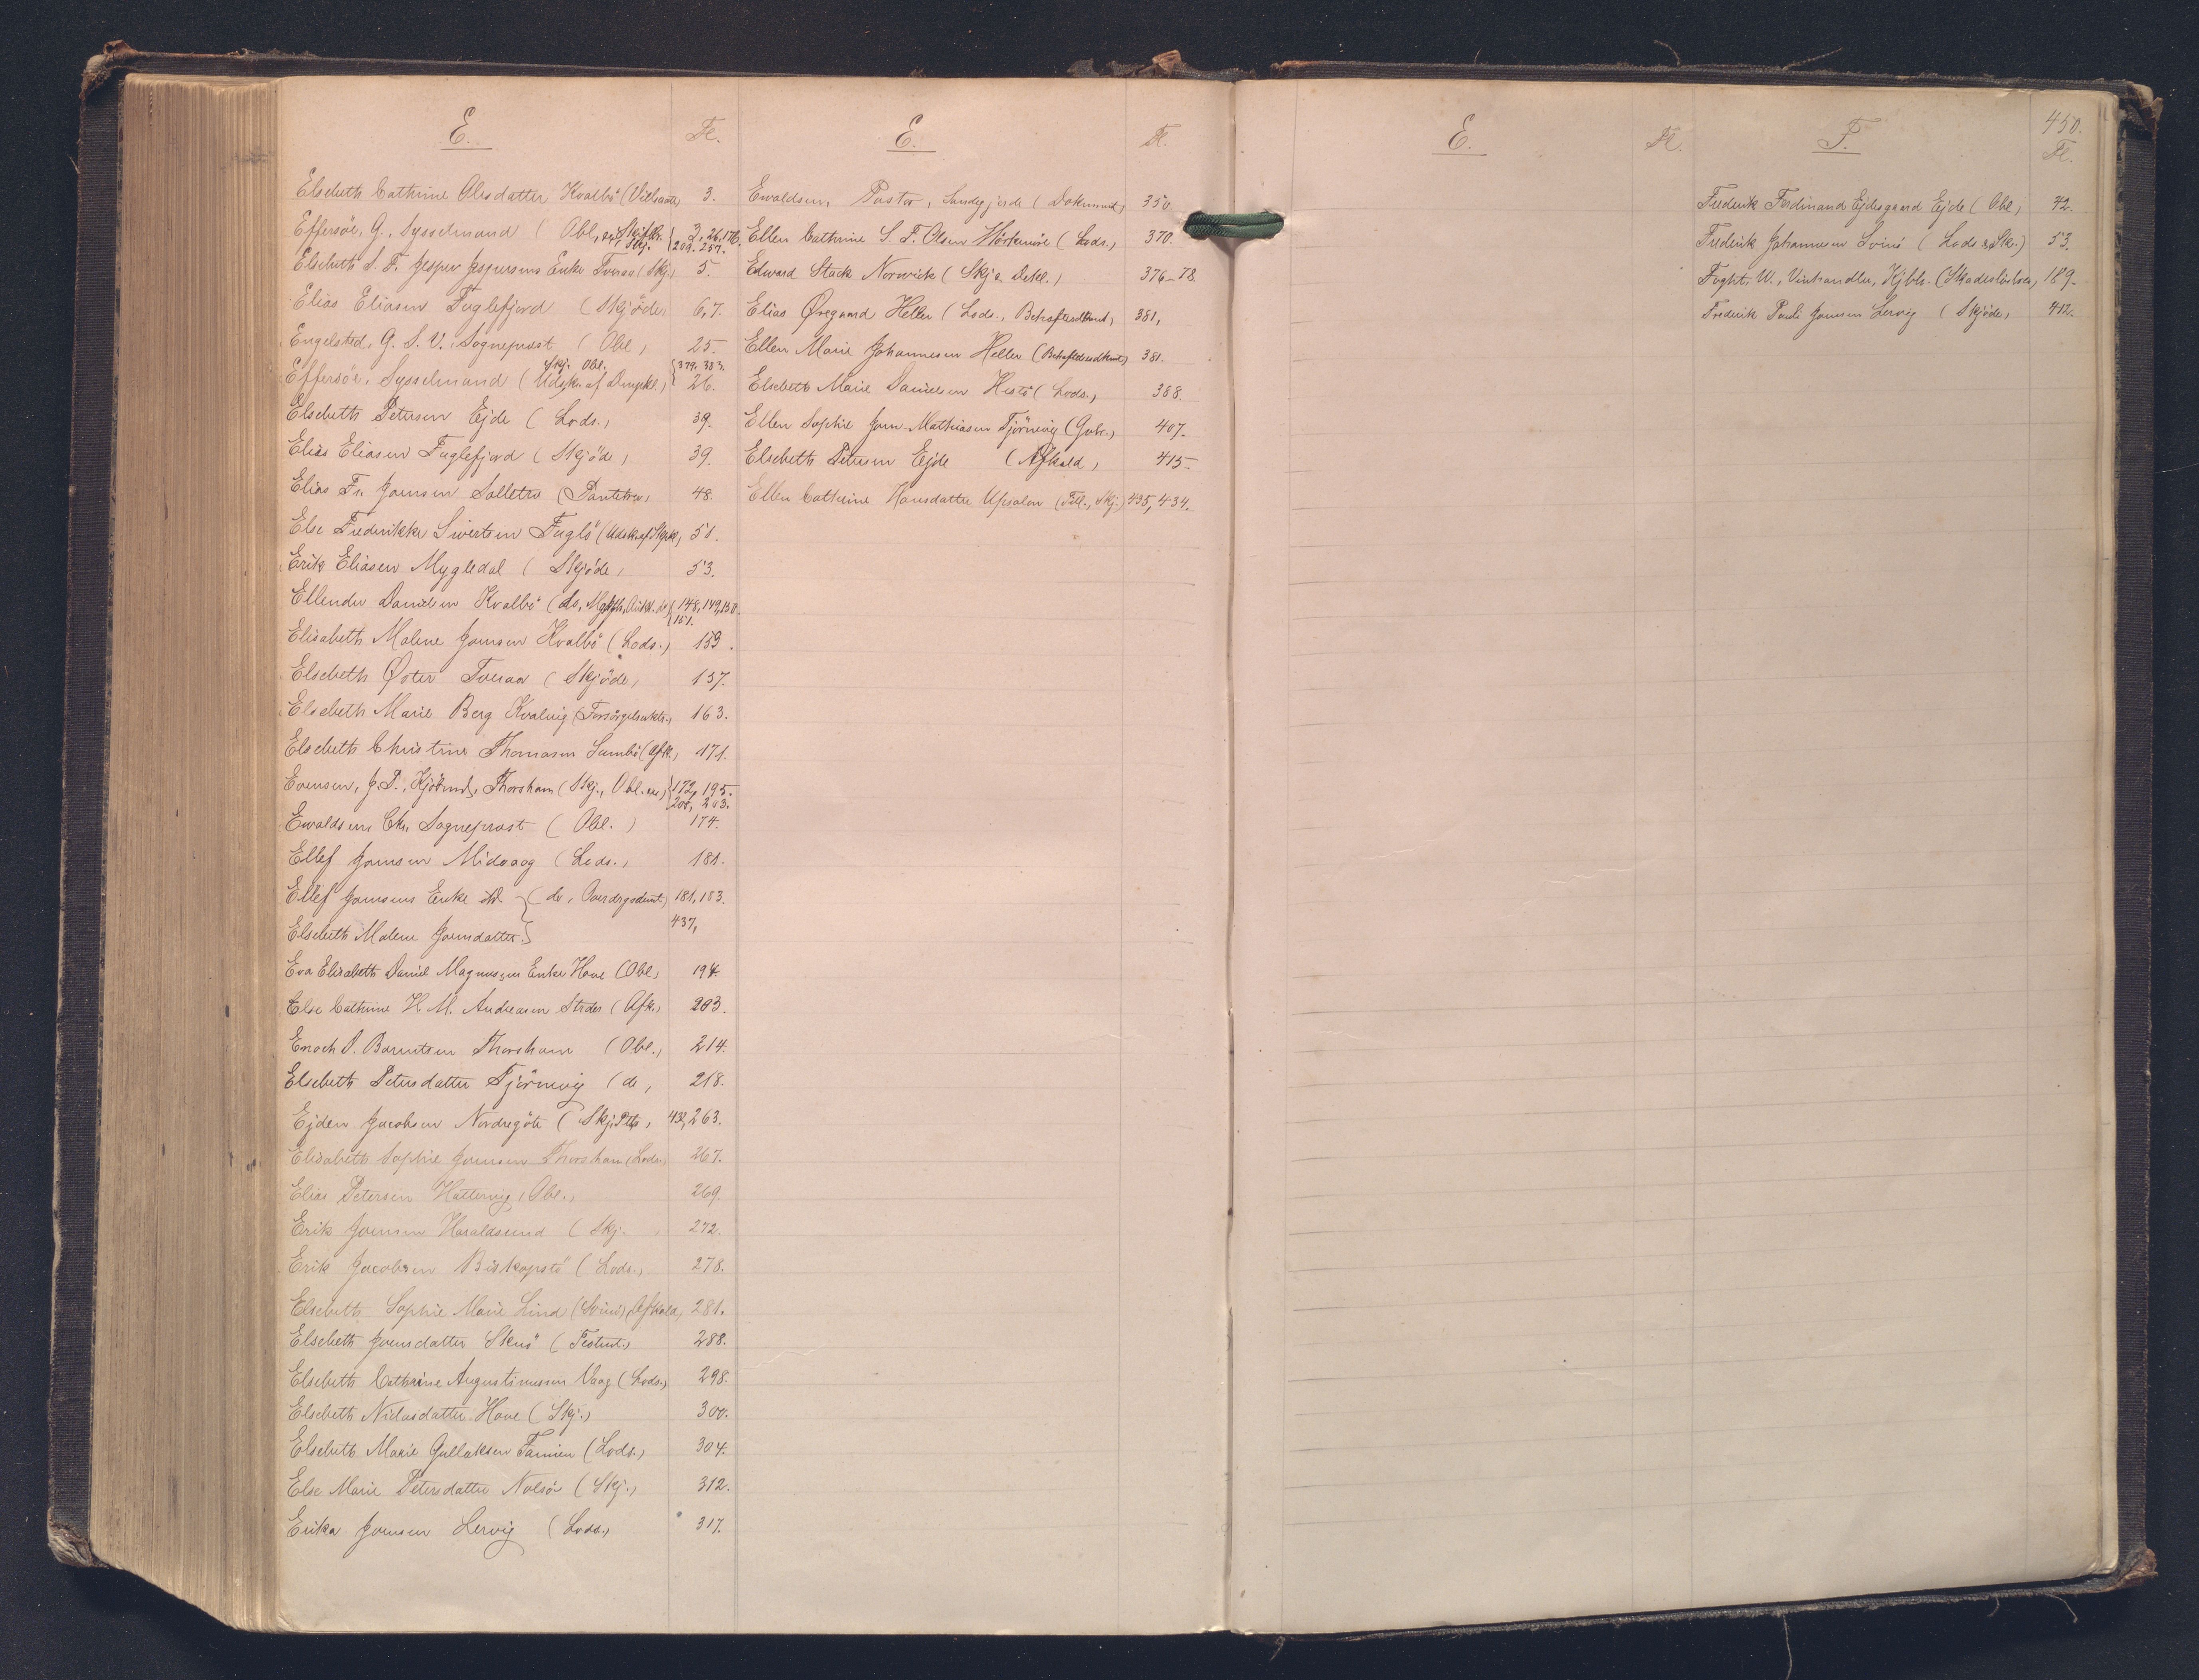 E. Fl.
Elsebeth Cathrine Olesdatter Kvalbö 3.
Effersöe, G., Sysselmand (Obl., Skiftbr. Skj. 3, 26, 176. 209. 257.
Elsebeth S. F. Jesper Jespersens Enke Tveraa (Skj.) 5.
Elias Eliasen Fuglefjord (Skjöde) 6, 7.
Engelsted, G. S. V., Sognepræst (Obl.) 25.
Effersöe, Sysselmand (Udskr. af Skj. Obl. 379. 383. 26.
Elsebeth Petersen Ejde (Lods.) 39.
Elias Eliasen Fuglefjord (Skjöde) 39.
Elias Fr. Joensen Solletrø 48.
Else Frederikke Sivertsen Fuglö 51.
Erik Eliasen Mygledal (Skjöde) 53.
Ellendr Danielsen Kvalbö 148, 149, 150. 151.
Elisabeth Malene Joensen Kvalbö (Lods.) 153.
Elsebeth Øster Tveraa (Skjöde) 157.
Elsebeth Marie Berg Kvalvig (Forsörgelseskte.) 163.
Elsebeth Christine Thomasen Sumbö (Afk.) 171.
Evensen, J. P., Kjöbmd., Thorshavn (Skj., Obl. 172, 195. 203.
Ewaldsen Chr. Sognepræst (Obl.) 174.
Ellef Joensen Midvaag (Lods.) 181.
Ellef Joensens Enke (do, 181, 183.
Elsebeth Malene Joensdatter 437,
Eva Elisabeth Daniel Magnussens Enke Hove (Obl.) 194.
Else Cathrine H. M. Andreasen Strder (Afk.) 203.
Enoch D. Barentsen Thorshavn (Obl.) 214.
Elsebeth Petersdatter Tjörnevig (do, 218.
Ejden Jacobsen Nordregöte (Skj. 432, 263.
Elisabeth Sophie Joensen Thorshavn (Lods.) 267.
Elias Petersen Hattervig, Obl., 269.
Erik Joensen Haraldssund (Skj. 272.
Erik Jacobsen Biskopstö (Lods.) 278.
Elsebeth Sophie Marie Lind (Svinö) (Afkald) 281.
Elsebeth Joensdatter Skuö (Testmt.) 288.
Elsebeth Cathrine Augustinussen Vaag (Lods.) 298.
Elsebeth Nielsdatter Hove (Skj.) 300.
Elsebeth Marie Gullaksen Famien (Lods.) 304.
Else Marie Petersdatter Nolsö (Skj.) 312.
Erika Joensen Lervig (Lods.) 317.
E. Fl.
Ewaldsen, Pastor, Sandegjerde (Dokument) 350.
Ellen Cathrine S. F. Olsen (Lods.) 370.
Edward Stack Norwick (Skj. & Dekl.) 376-78.
Elias Øregaard Heller (Lods., 381,
Ellen Marie Johannesen Heller 381.
Elsebeth Marie Danielsen Hestö (Lods.) 388.
Ellen Sophie Joen Mathiasen Tjörnevig (Gvbr.) 407.
Elsebeth Petersen Ejde (Afkald) 415.
Ellen Cathrine Hansdatter Upsalen (Skj.) 435, 434.
E. Fl.
450.
F. Fl.
Frederik Ferdinand Ejdesgaard Ejde (Obl.) 42.
Frederik Johannesen Svinö (Lods. & Skr.) 53.
Foght, W., Vinhandler, Kjbh. (Skadeslösbrev) 189.
Frederik Pauli Joensen Lervig (Skjöde) 412.